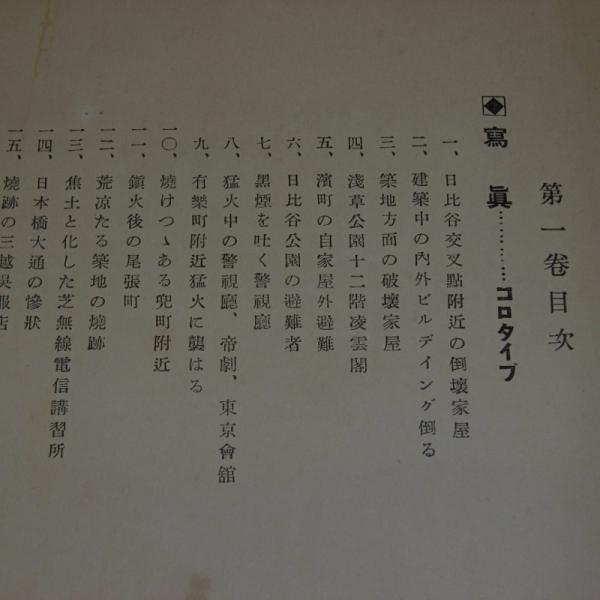 第一卷目次
寫眞…………コロタイプ
一、日比谷交叉點附近の倒壞家屋
二、建築中の內外ビルデイング倒る
三、築地方面の破壞家屋
四、淺草公園十二階凌雲閣
五、濱町の自家屋外避難
六、日比谷公園の避難者
七、黑煙を吐く警視廳
八、猛火中の警視廳、帝劇、東京會舘
九、有樂町附近猛火に襲はる
一〇、燒けつゝある兜町附近
一一、鎭火後の尾張町
一二、荒凉たる築地の燒跡
一三、焦土と化した芝無線電信講習所
一四、日本橋大通の慘狀
一五、燒跡の三越吳服店